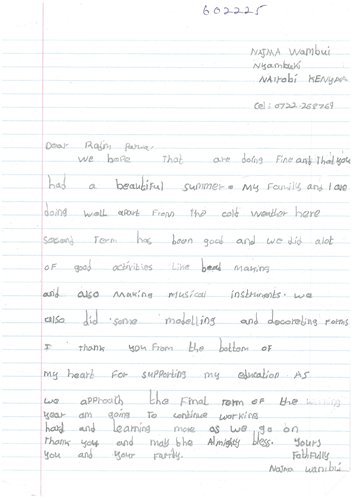 602225
NAJMA Wambui
Nyambuki
NAIrobi KENYA
Cel: 0722-268769
Dear Rajm
We hope That are doing Fine and That you
had a beautiful summer. My Family and I are
doing well apart From The cold weather here
second Term has been good and we did alot
of good activities like bead making
and also making musical instruments. we
also did some modelling and decorating
I thank you From the bottom of
my heart For supporting my education As
we approach the Final term of the
year am going To continue working
hard and learning more as we go on
Thank you and the Almighty bless. Yours
you and your Family. Faithfully
Najma Wambui